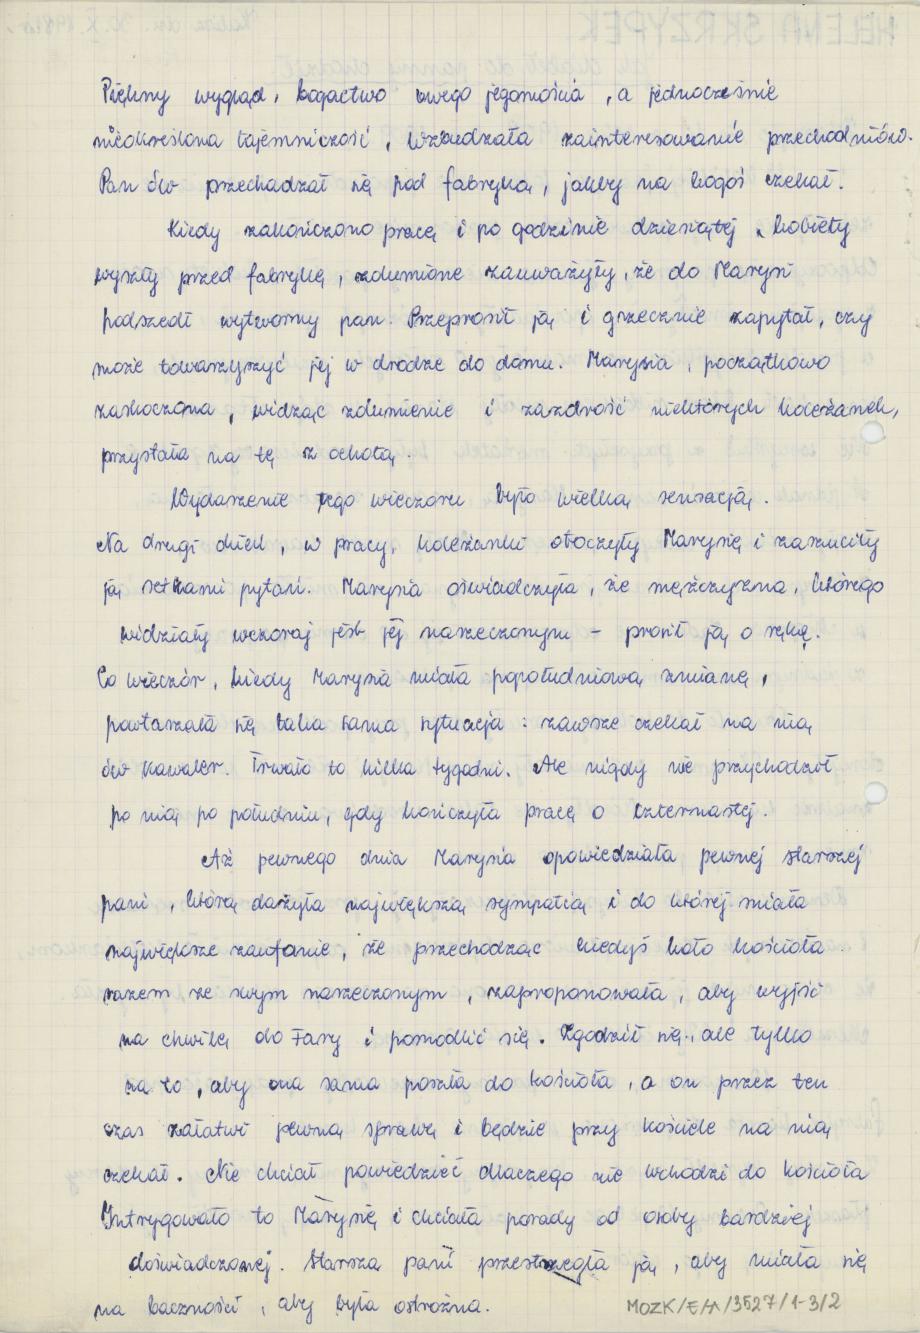 Piękny wygląd, bogactwo owego jegomościa, a jednocześnie
nieokreślona tajemniczość, wzbudzała zainteresowanie przechodniów.
Pan ów przechadzał się pod fabryką, jakby na kogoś czekał.
Kiedy zakończono pracę i po godzinie dziesiątej, kobiety
wyszły przed fabrykę, zdumione zauważyły, że do Marysi
podszedł wytworny pan. Przeprosił ją i grzecznie zapytał, czy
może towarzyszyć jej w drodze do domu. Marysia, początkowo
zaskoczona, widząc zdumienie i zazdrość niektórych koleżanek,
przystała na tę z ochotą.
Wydarzenie tego wieczoru było wielką sensacją.
Na drugi dzień, w pracy, koleżanki otoczyły Marysię i zarzuciły
ją setkami pytań. Marysia oświadczyła, że mężczyzna, którego
widziały wczoraj jest jej narzeczonym – prosił ją o rękę.
Co wieczór, kiedy Marysia miała popołudniową zmianę,
powtarzała się taka sama sytuacja: zawsze czekał na nią
ów kawaler. Trwało to kilka tygodni. Ale nigdy nie przychodził
po nią po południu, gdy kończyła pracę o czternastej.
Aż pewnego dnia Marysia opowiedziała pewnej starszej
pani, którą darzyła największą sympatią i do której miała
największe zaufanie, że przechodząc kiedyś koło kościoła
razem ze swym narzeczonym, zaproponowała, aby wyjść
na chwilę do Fary i pomodlić się. Zgodził się, ale tylko
na to, aby ona sama poszła do kościoła, a on przez ten
czas załatwi pewną sprawę i będzie przy kościele na nią
czekał. Nie chciał powiedzieć dlaczego nie wchodzi do kościoła
Intrygowało to Marysię i chciała porady od osoby bardziej
doświadczonej. Starsza pani przestrzegła ją, aby miała się
na baczności, aby była ostrożna.
MOZK/E/A/3527/1-3/2